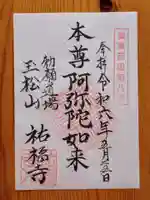 奉拝 令和六年五月三日
本尊阿弥陀如来
勅願道場
玉松山
祐福寺